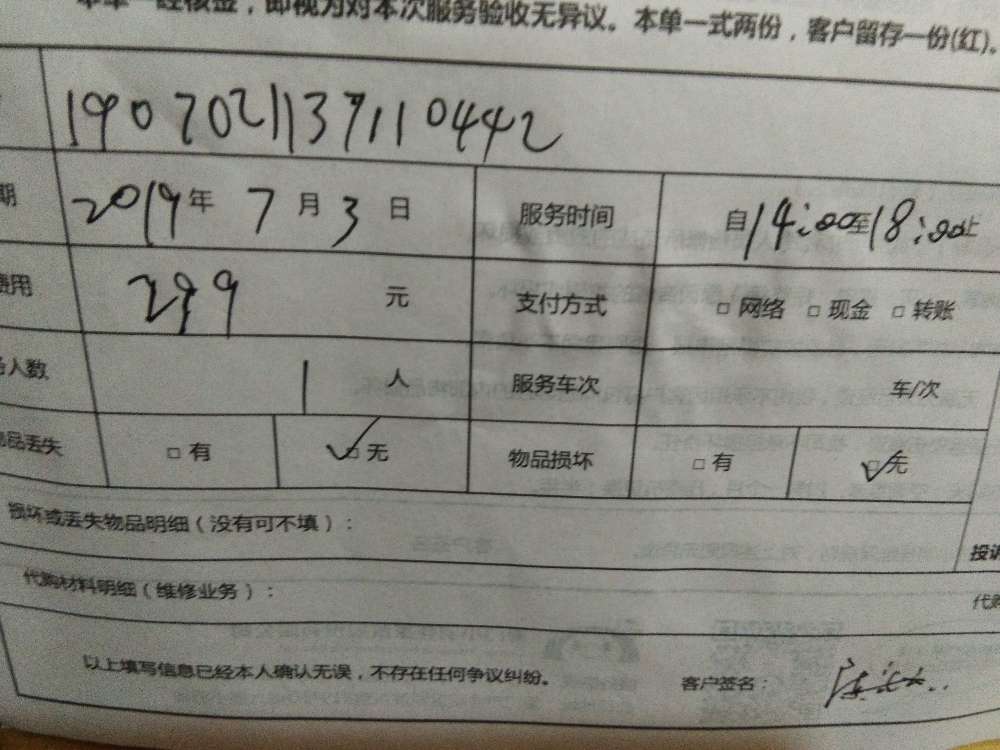 本单一经核金，即视为对本次服务验收无异议。本单一式两份，客户留存一份(红)。
1907021137110442
期 2019年 7月 3日 服务时间 自14:00至18:00止
费用 299 元 支付方式 □ 网络 □ 现金 □ 转账
人数 1 人 服务车次 车/次
物品丢失 □ 有 ☑ 无 物品损坏 □ 有 ☑ 无
损坏或丢失物品明细（没有可不填）： 投诉
代购材料明细（维修业务）： 代购
以上填写信息已经本人确认无误，不存在任何争议纠纷。 客户签名：